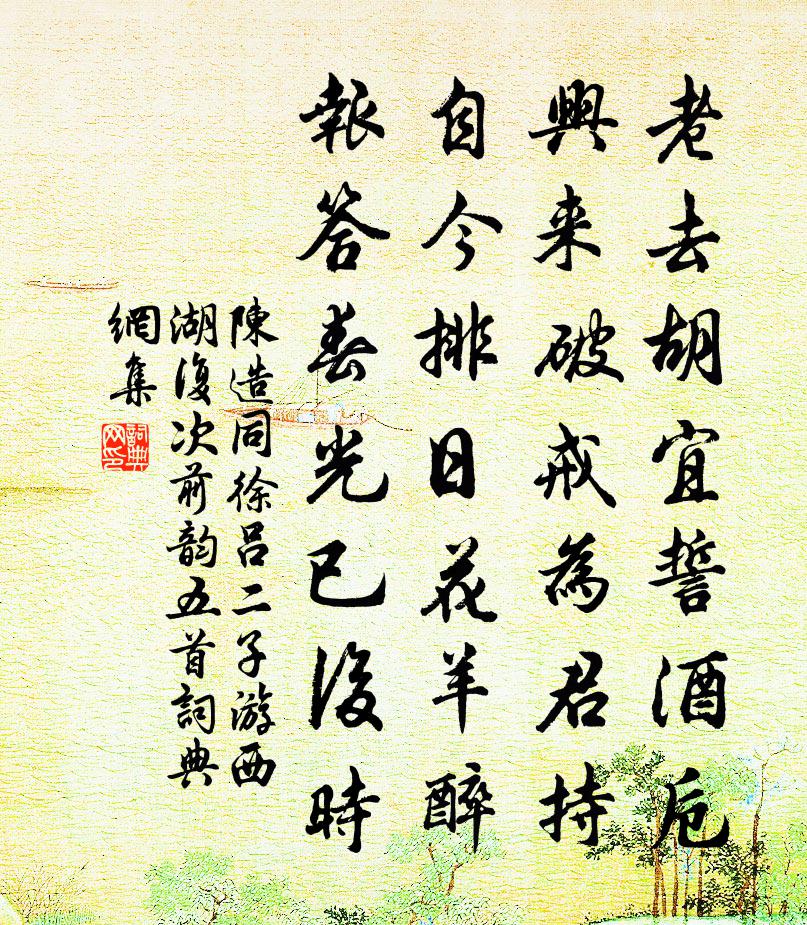 老去胡宜誓酒卮
興来破戒為君持
自今排日花羊醉
報答春光已後時
陳造同徐呂二子游西
湖復次前韵五首詞典
網集
詞典
网印